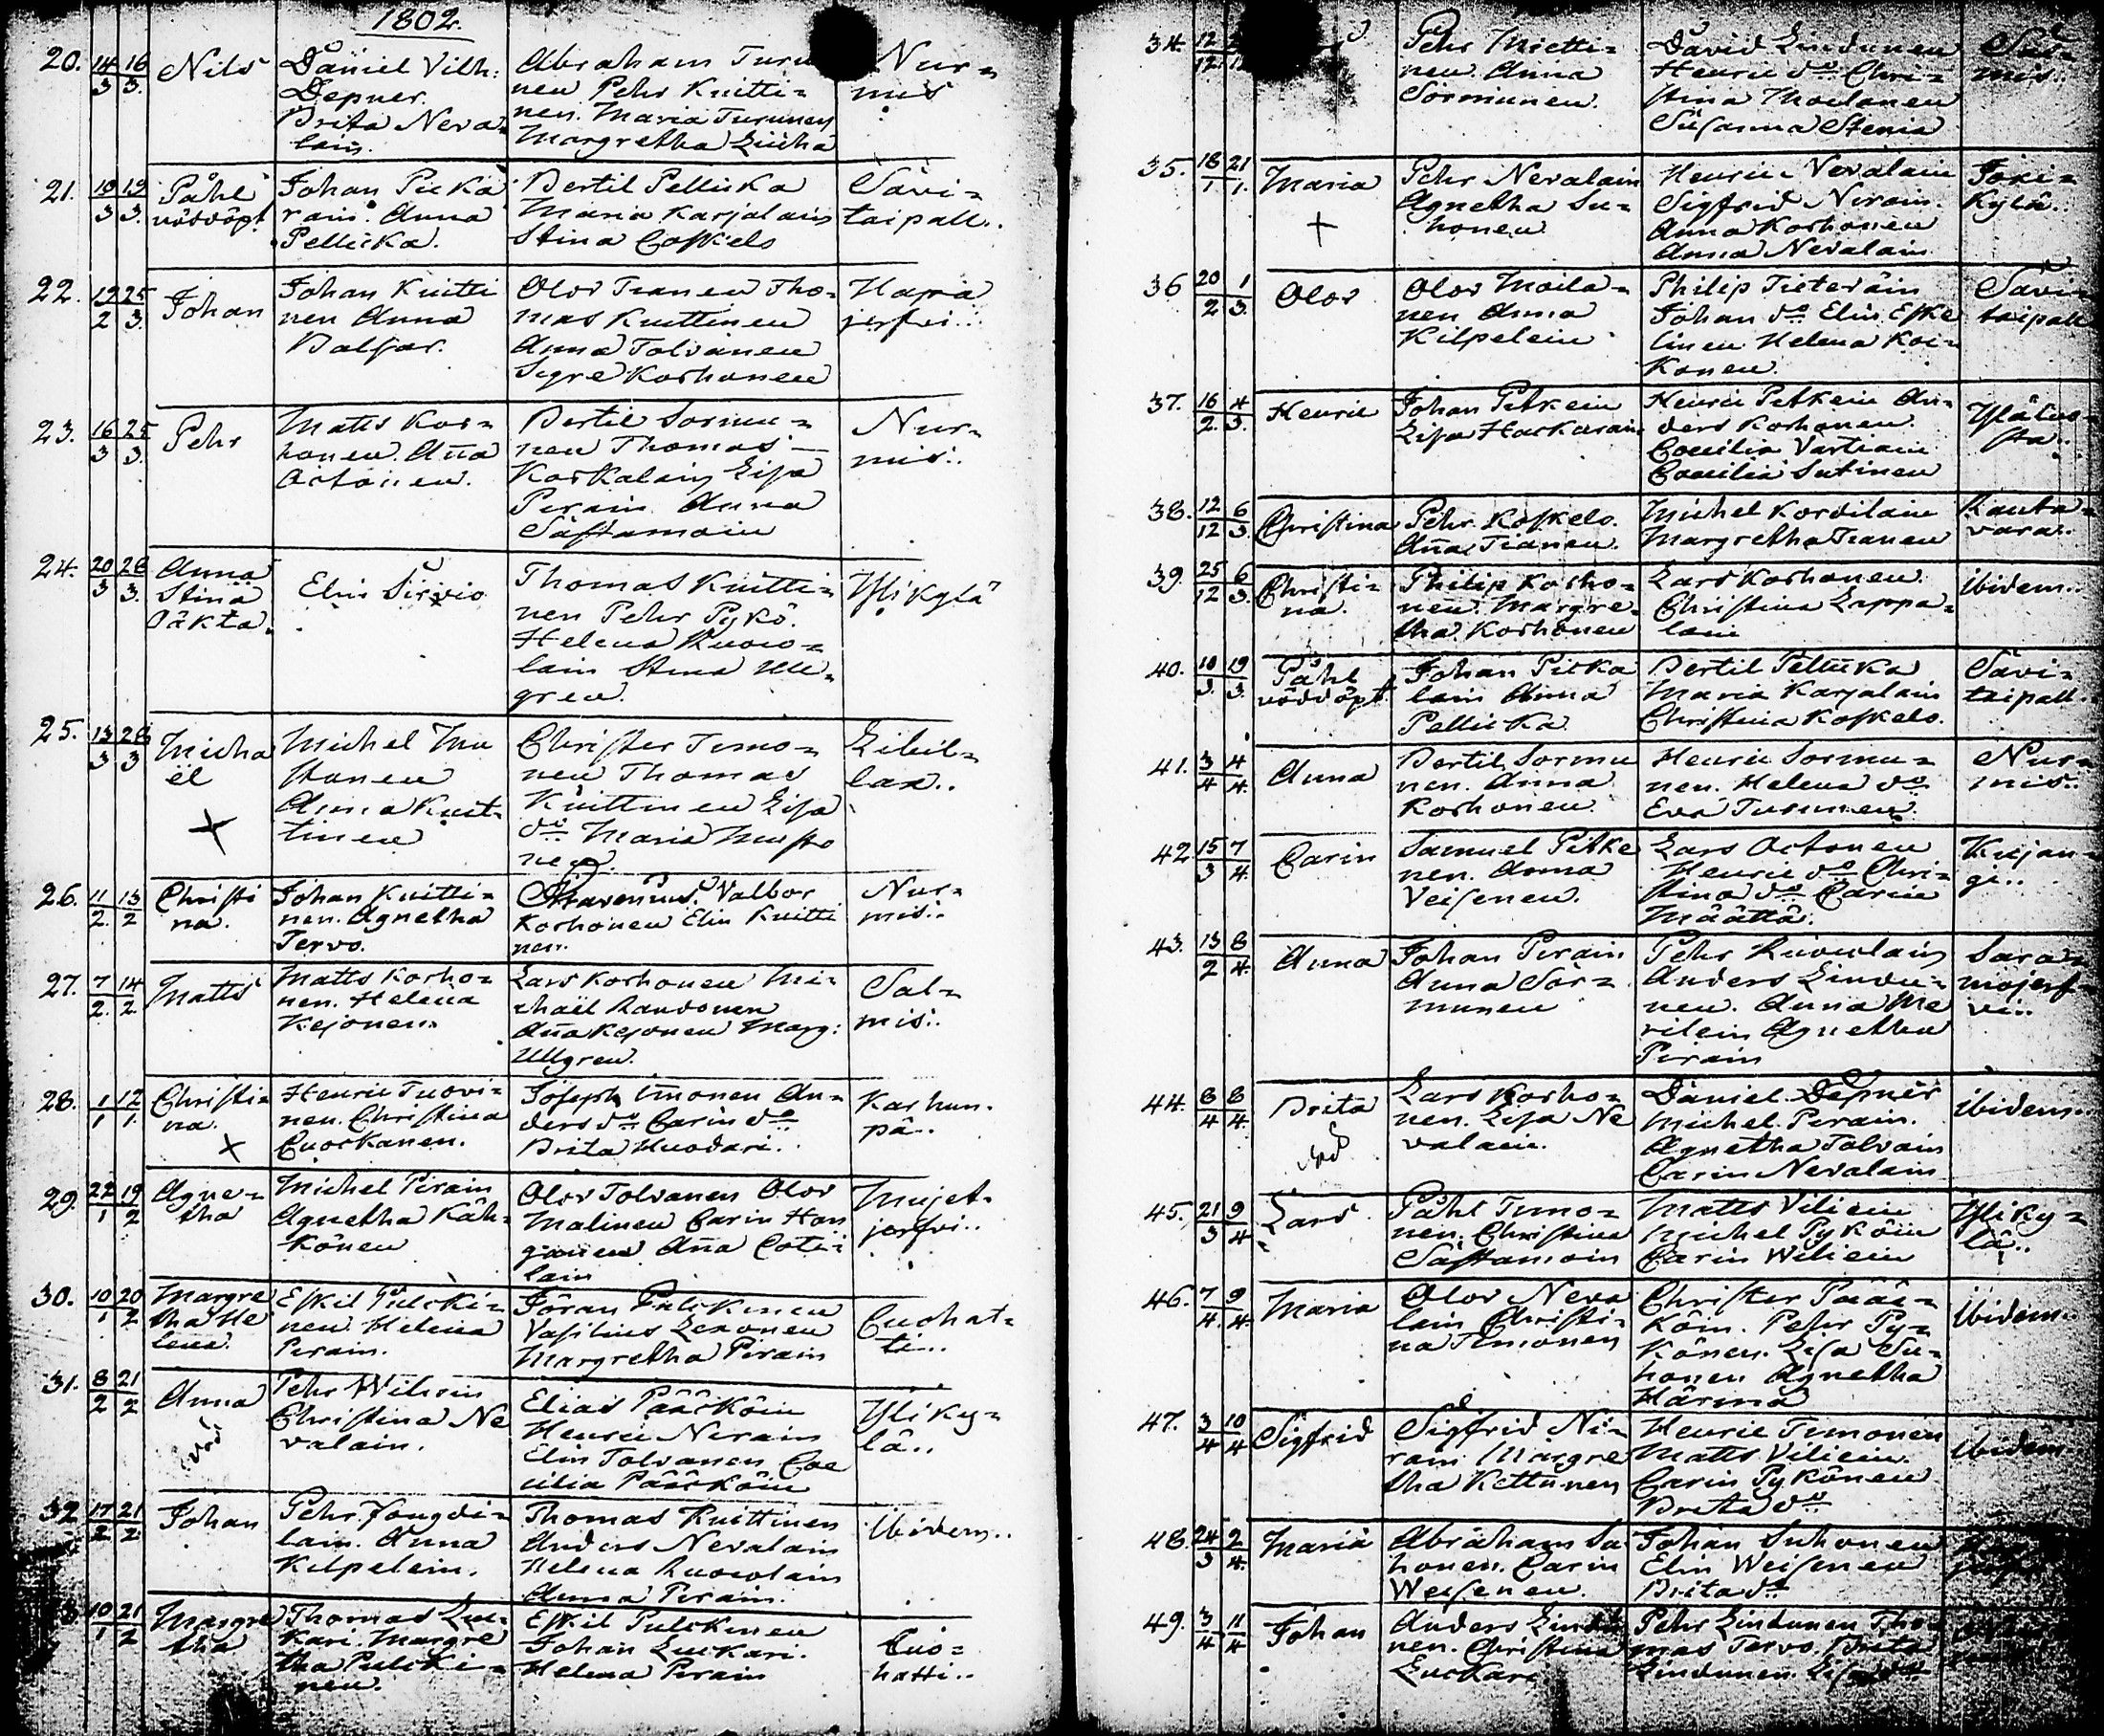 1802.
20. 14/3 16/3. Nils
Daniel Vilh:
Depner.
Brita Neva=
lain.
Abraham Turu
nen Pehr Kuitti=
nen. Maria Turunen
Margretha
Nur=
mis
21. 10/3 19/3. Påhl
nöddöpt
Johan Picka
rain. Anna
Pellicka.
Bertil Pellicka
Maria Karjalain
Stina Coskelo
Savi=
taipall..
22. 19/2 25/3. Johan
Johan Kuitti
nen Anna
Balsar.
Olov Tranen Tho=
mas Kuittinen
Anna Tolvanen
Sigre Korhonen
Hapa
jerfvi..
23. 16/3 25/3. Pehr
Matts Kor=
honen. Anna
Actoinen.
Bertil Sormu=
nen Thomas
Korkalain Lisa
Perain Anna
Säftamoin
Nur=
mis..
24. 20/3 28/3. Anna
Stina
Oäkta.
Elin Sirvio
Thomas Kuitti=
nen Pehr Pykö.
Helena Ruoco=
lain Stina Ull=
gren.
Ylikylä
25. 13/3 28/3 Micha
ël
+
Michel Mu
stonen
Anna Kuit=
tinen
Christer Timo=
nen Thomas
Kuittinen Lisa
do Maria Musto
nen
Libel=
lax..
26. 11/2. 13/2 Christi
na.
Johan Kuitti=
nen. Agnetha
Tervo.
Valbor
Korhonen Elin Kuitti
nen.
Nur=
mis..
27. 7/2. 14/2 Matts
Matts Korho=
nen. Helena
Kejonen.
Lars Korhonen Mi=
chaël Raudonen
Anna Kejonen Marg:
Ullgren.
Sal=
mis..
28. 1/1 12/1. Christi=
na.
x
Henric Tuovi=
nen. Christina
Cuockanen.
Joseph Imonen An=
ders do Carin do
Brita Huodari.
Karhun.
pä..
29. 22/1 19/2 Agne=
tha
Michel Pirain
Agnetha Käh=
könen
Olov Tolvanen Olov
Malinen Carin Hon
ganen Anna Coti=
lain
Mujet=
jerfvi..
30. 10/1 20/2 Margre
tha He
lena.
Eskil Pulcki=
nen. Helena
Perain.
Jöran Pulckinen
Vasilius Lexonen
Margretha Perain
Cuohat=
ti..
31. 8/2 21/2 Anna
nöd
Pehr Wilcain
Christina Ne
valain.
Elias Pääcköin
Henric Nerain
Elin Tolvanen Coe
cilia Pääcköin
Yliky=
lä..
32 17/2 21/2 Johan
Pehr Jougdi=
lain. Anna
Kilpelein.
Thomas Kuittinen
Anders Nevalain
Helena Ruocolain
Anna Perain.
Ibidem..
10/1 21/2 Margre
tha
Thomas Luc=
kari. Margre
tha Pulcki=
nen.
Eskil Pulckinen
Johan Luckari.
Helena Perain
Cuo=
hatti..
34. 12/12
Pehr Mietti=
nen. Anna
Sormunen.
David Lindunen
Henric do Chri=
stina Moilanen
Susanna Stenia
mis..
35. 18/1 21/1. Maria
+
Pehr Nevalain
Agnetha Su=
honen
Henric Nevalain
Sigfrid Nirain.
Anna Korhonen
Anna Nevalain
Joki=
kylä..
36 20/2 1/3. Olov
Olov Moila=
nen Anna
Kilpelein
Philip Tieteräin
Johan do Elin Eske
linen Helena Koi=
konen.
Savi=
taipall
37. 16/2. 4/3. Henric
Johan Pitkein
Lisa Hackarain
Henric Petkein An=
ders Korhonen.
Coecilia Vartiain
Coecilia Sutinen
Yläluo=
sta..
38. 12/12 6/3. Christina
Pehr Koskelo.
Anna Tranen.
Michel Kordilain
Margretha Tranen
Rauta=
vara..
39. 25/12 6/3. Christi=
na.
Philip Korho=
nen. Margre=
tha Korhonen
Lars Korhonen
Christina Lappa=
lain
Ibidem..
40. 10/3. 19/3. Påhl
nöddöpt
Johan Picka
lain Anna
Pellicka.
Bertil Pellicka
Maria Karjalain
Christina Koskelo.
Savi=
taipall.
41. 3/4 4/4. Anna
Bertil Sormu
nen. Anna
Korhonen.
Henric Sormu=
nen. Helena do
Eva Turunen.
Nur=
mis..
42. 15/3 7/4. Carin
Samuel Pitke
nen. Anna
Veisenen.
Lars Actonen
Henric do Chri=
stina do Carin
Määttä.
Kujan=
gi..
43. 13/2 8/4. Anna
Johan Perain
Anna Sor=
munen
Pehr Ruocolain
Anders Lindu=
nen. Anna Me
rilein Agnetha
Perain
Sara=
mojerf=
vi..
44. 8/4 8/4. Brita
nöd
Lars Korho=
nen. Lisa Ne
valain.
Daniel Depner
Michel Perain.
Agnetha Tolvain
Carin Nevalain
Ibidem..
45. 21/3 9/4. Lars
Påhl Timo=
nen. Christina
Säftamoin
Matts Vilicin
Michel Pyköin
Carin Wilicin
Yliky=
lä..
46. 7/4. 9/4. Maria
Olov Neva
lain Christi=
na Timonen
Christer Pääc=
köin. Pehr Py=
könen. Lisa Su=
honen Agnetha
Härmä
Ibidem..
47. 3/4 10/4 Sigfrid
Sigfrid Ni=
rain. Margre
tha Kettunen
Henric Timonen
Matts Vilicin.
Carin Pykönen
Brita do
Ibidem
48. 24/3 2/4. Maria
Abraham Su
honen. Carin
Weisenen.
Johan Suhonen
Elin Weisenen
Brita do
49. 3/4 11/4 Johan
Anders Lindu
nen. Christina
Luckari
Pehr Lindunen Tho=
mas Tervo. Brita
Lindunen. Lisa do